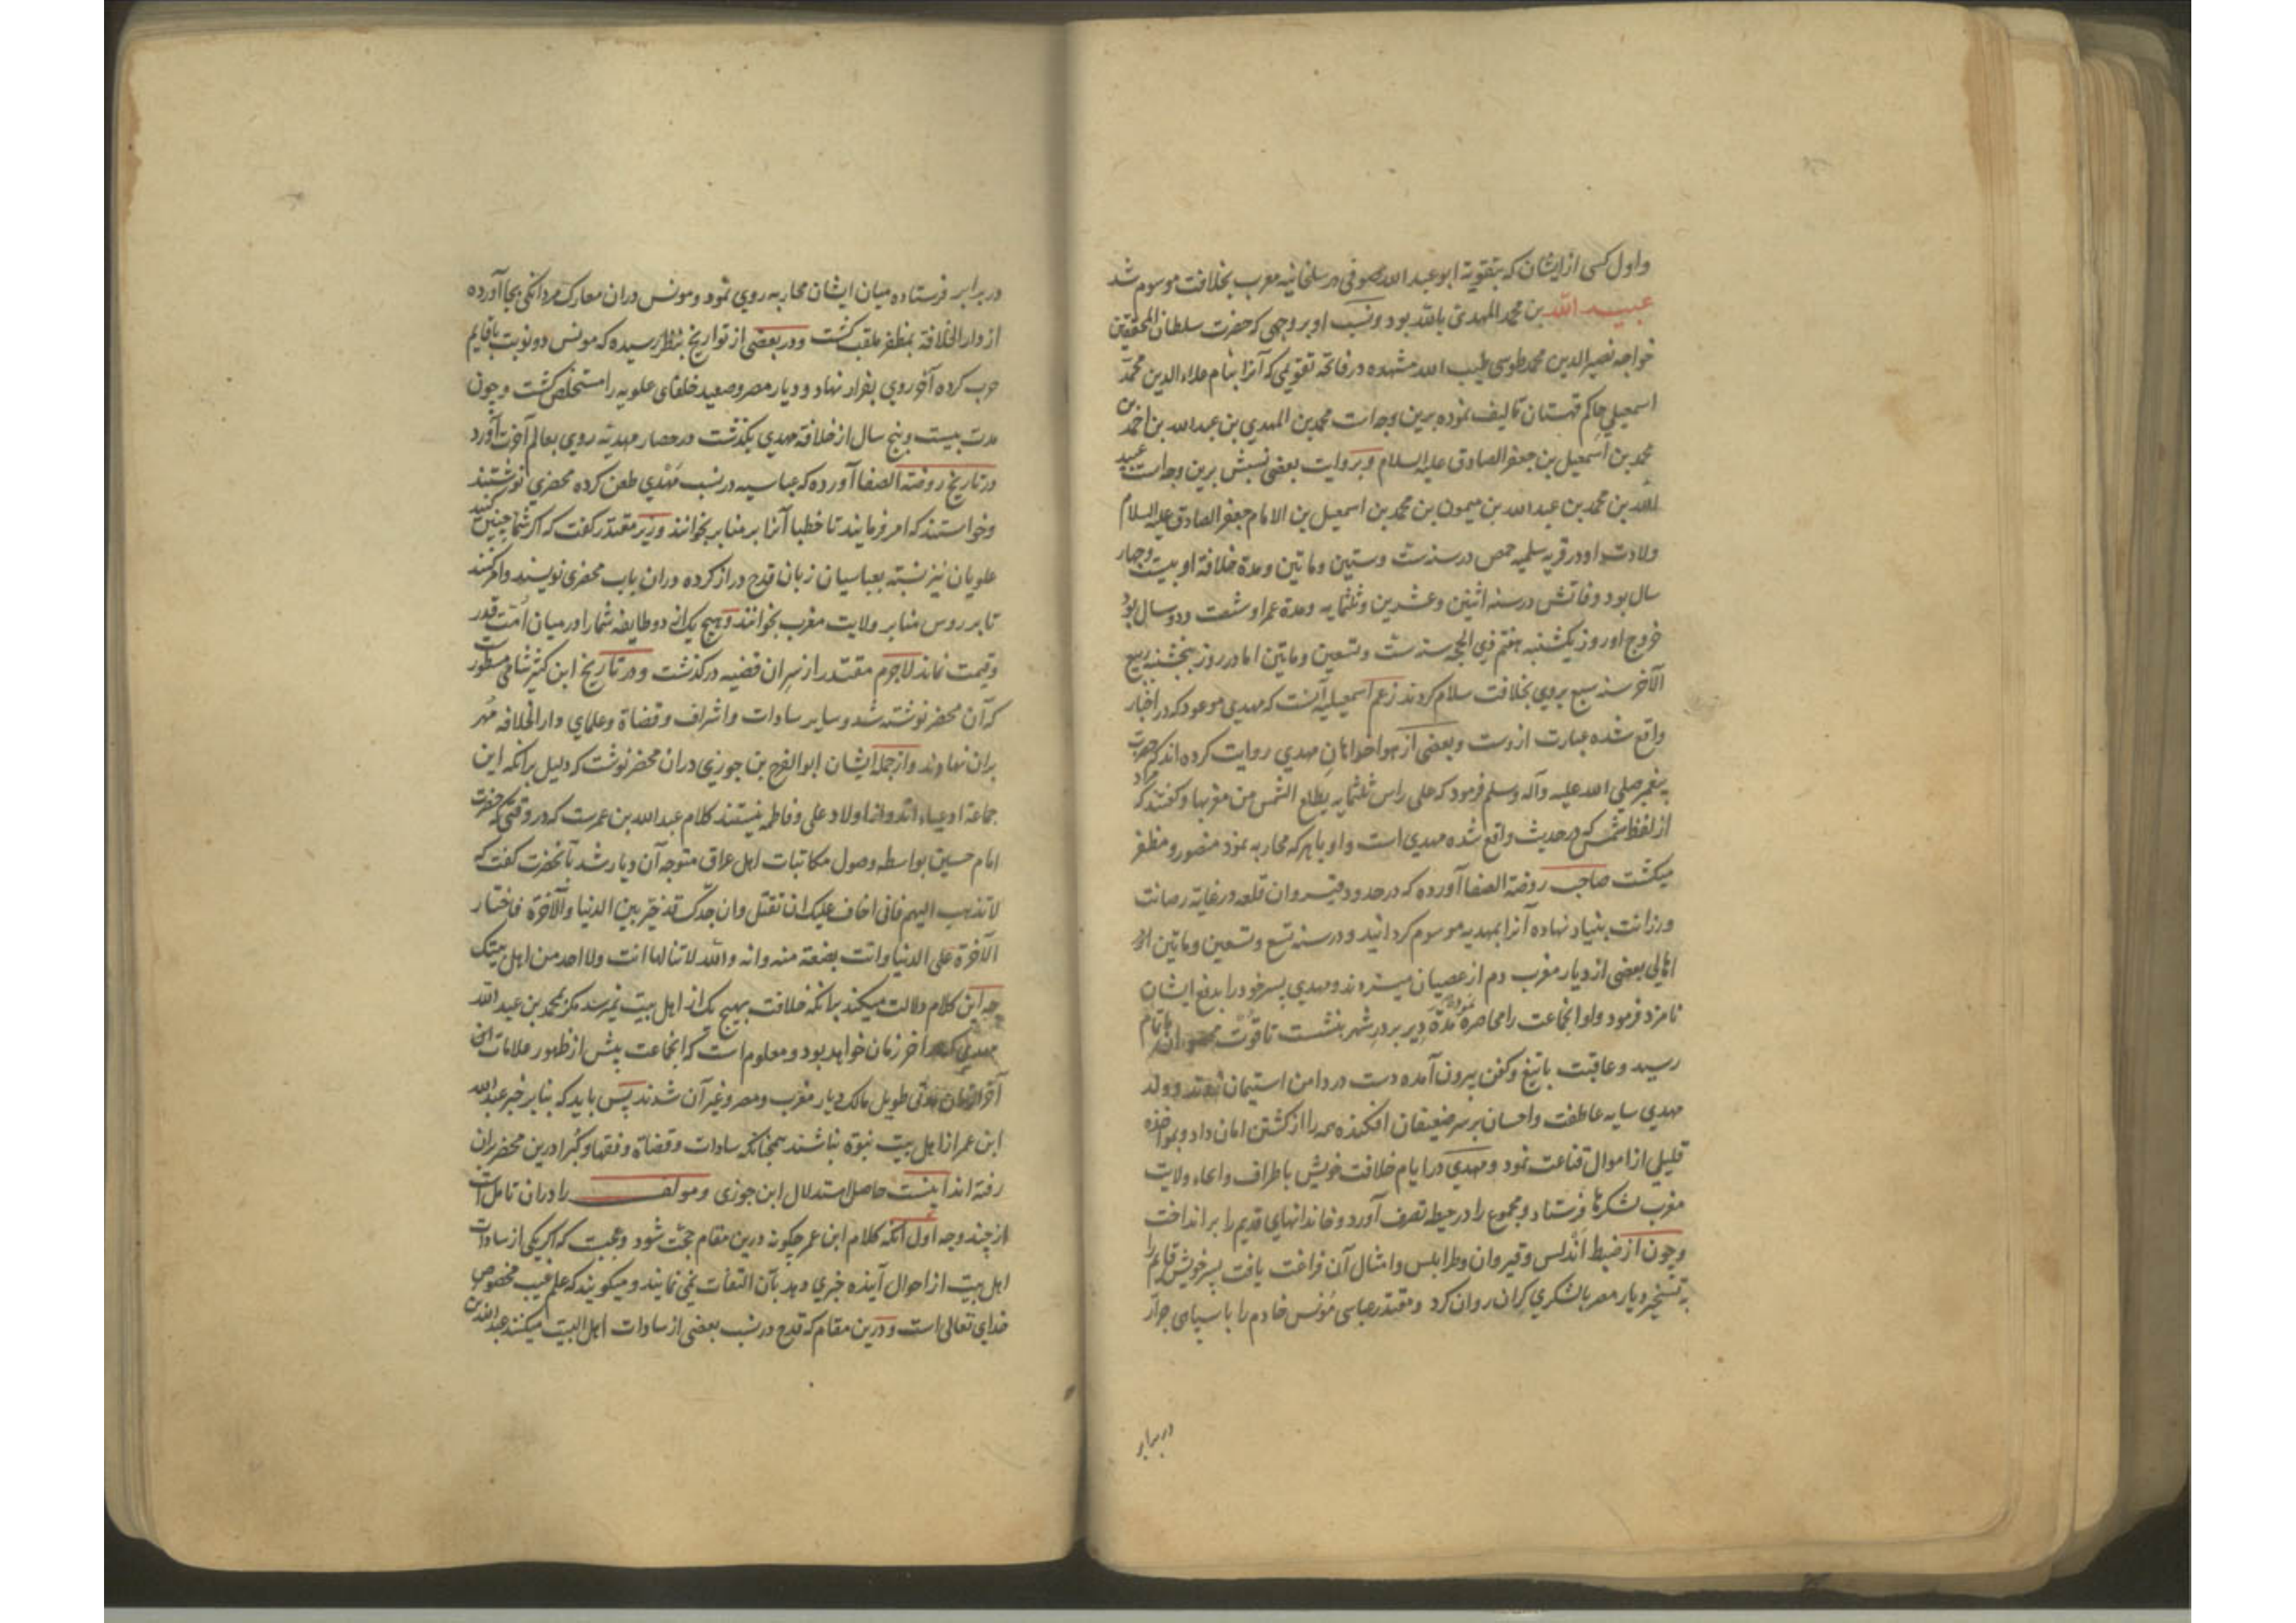 واول کسی از ایشان که بتقویة ابو عبد الله صوفی در سلخانیه مغرب بخلافت موسوم شد
عبید الله بن محمد المهدی بالله بود ونسب او بر وجهی که حضرت سلطان المحققین
خواجه نصیر الدین محمد طوسی طیب الله مشهده در فاتحه تقویمی که آنرا بنام علاء الدین محمد
اسمعیلی حاکم قهستان تالیف نموده برین وجه است محمد بن المهدی بن عبد الله بن احمد بن
محمد بن اسمعیل بن جعفر الصادق علیه السلام وبروایت بعضی نسبش برین وجه است عبید
الله بن محمد بن عبد الله بن میمون بن محمد بن اسمعیل بن الامام جعفر الصادق علیه السلام
ولادت او در قریه سلمیه حمص در سنه ست وستین وماتین ومدة خلافة او بیست وچهار
سال بود وفاتش در سنه اثنین وعشرین وثلثمایه ومدة عمر او شصت ودو سال بود
خروج او روز یکشنبه هفتم ذی الحجه سنه ست وتسعین وماتین اما در روز پنجشنبه ربیع
الآخر سنه سبع بروی بخلافت سلام کردند زعم اسمعیلیه آنست که مهدی موعود که در اخبار
واقع شده عبارت ازوست وبعضی از هواخواهان مهدی روایت کرده اند که حضرت
پیغمبر صلی الله علیه وآله وسلم فرمود که علی راس ثلثمایه یطلع الشمس من مغربها وگفتند که مراد
از لفظ شمس که در حدیث واقع شده مهدی است واو با هر که محاربه نمود منصور ومظفر
میکشت صاحب روضة الصفا آورده که در حدود قیروان قلعه در غایة رصانت
ورزانت بنیاد نهاده آنرا بمهدیه موسوم گردانید ودر سنه تسع وتسعین وماتین از
اهالی بعضی از دیار مغرب دم از عصیان میزدند ومهدی پسر خود را بدفع ایشان
نامزد فرمود واو انجماعت را محاصره نموده مدة دیر بر در شهر بنشست تا قوت باتمام
رسید وعاقبت با تیغ وکفن بیرون آمده دست در دامن استیمان زدند وولد
مهدی سایه عاطفت واحسان بر سر ضعیفان افکنده همه را از کشتن امان داد وبمواخذه
قلیلی از اموال قناعت نمود ومهدی در ایام خلافت خویش باطراف وانحاء ولایت
مغرب لشکرها فرستاد ومجموع را در حیطه تصرف آورد وخاندانهای قدیم را بر انداخت
وچون از ضبط اندلس وقیروان وطرابلس وامثال آن فراغت یافت پسر خویش قایم را
به تسخیر دیار مصر با لشکری گران روان کرد ومقتدر عباسی مونس خادم را با سپاهی جرار
در برابر
در برابر فرستاده میان ایشان محاربه روی نمود ومونس دران معارک مردانکی بجا آورده
از دار الخلافة بمظفر ملقب کشت ودر بعضی از تواریخ بنظر رسیده که مونس دو نوبت با قایم
حرب کرده آخر روی بفرار نهاد ودیار مصر وصعید خلفای علویه را مستخلص کشت وچون
مدت بیست وپنج سال از خلافة مهدی بگذشت در حصار مهدیه روی بعالم آخرت آورد
در تاریخ روضة الصفا آورده که عباسیه در نسب مهدی طعن کرده محضری نوشتند
وخواستند که امر فرمایند تا خطبا آنرا بر منابر بخوانند وزیر مقتدر گفت که اگر شما چنین کنید
علویان نیز نسبت بعباسیان زبان قدح دراز کرده دران باب محضری نویسند وامر کنند
تا بر روس منابر ولایت مغرب بخوانند وهیچ یک از این دو طایفه شما را در میان امت قدر
وقیمت نماند لاجرم مقتدر از سر ان قضیه درگذشت ودر تاریخ ابن کثیر شامی مسطور است
که آن محضر نوشته شد وسایر سادات واشراف وقضاة وعلمای دار الخلافه مهر
بران نهادند واز جمله ایشان ابو الفرج بن جوزی دران محضر نوشت که دلیل برانکه این
جماعة ادعیاء اند واز اولاد علی وفاطمه نیستند کلام عبد الله بن عمرست که در وقتی که حضرت
امام حسین بواسطه وصول مکاتبات اهل عراق متوجه آن دیار شد بآنحضرت گفت که
لا تذهب الیهم فانی اخاف علیک ان تقتل وان جدک قد خیر بین الدنیا والآخرة فاختار
الآخرة علی الدنیا وانت بضعة منه وانه والله لا تنالها انت ولا احد من اهل بیتک
چه این کلام دلالت میکند برانکه خلافت بهیچ یک از اهل بیت نمیرسد مگر بمحمد بن عبد الله
مهدی که در آخر زمان خواهد بود ومعلوم است که انجماعت پیش از ظهور علامات
آخر الزمان مدتی طویل مالک دیار مغرب ومصر وغیر آن شدند پس باید که بنا بر خبر عبد الله
ابن عمر از اهل بیت نبوة نباشند همچنانکه سادات وقضاة وفقها وکبرا درین محضر بران
رفته اند اینست حاصل استدلال ابن جوزی ومولف را دران تامل است
از چند وجه اول آنکه کلام ابن عمر چگونه درین مقام حجت شود وعجبست که اگر یکی از سادات
اهل بیت از احوال آینده خبری دهد بآن التفات نمی نمایند ومیگویند که علم غیب مخصوص
خدای تعالی است ودرین مقام که قدح در نسب بعضی از سادات اهل البیت میکنند عبد الله بن